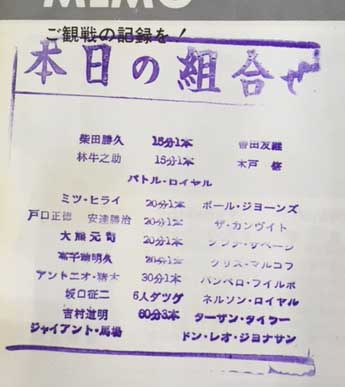 MEMO
ご観戦の記録を!
本日の組合せ
柴田勝久 15分1本
林牛之助 15分1本 木戸 修
バトル・ロイヤル
ミツ・ヒライ 20分1本 ポール・ジョーンズ
戸口正徳 安達勝治 20分1本 ザ・カンヴィト
大熊元司 20分1本
20分1本 クリス・マルコフ
アントニオ・猪木 30分1本 パンペロ・フイルポ
坂口征二 6人タッグ ネルソン・ロイヤル
吉村道明 60分3本 ターザン・タイラー
ジャイアント・馬場 ドン・レオ・ジョナサン